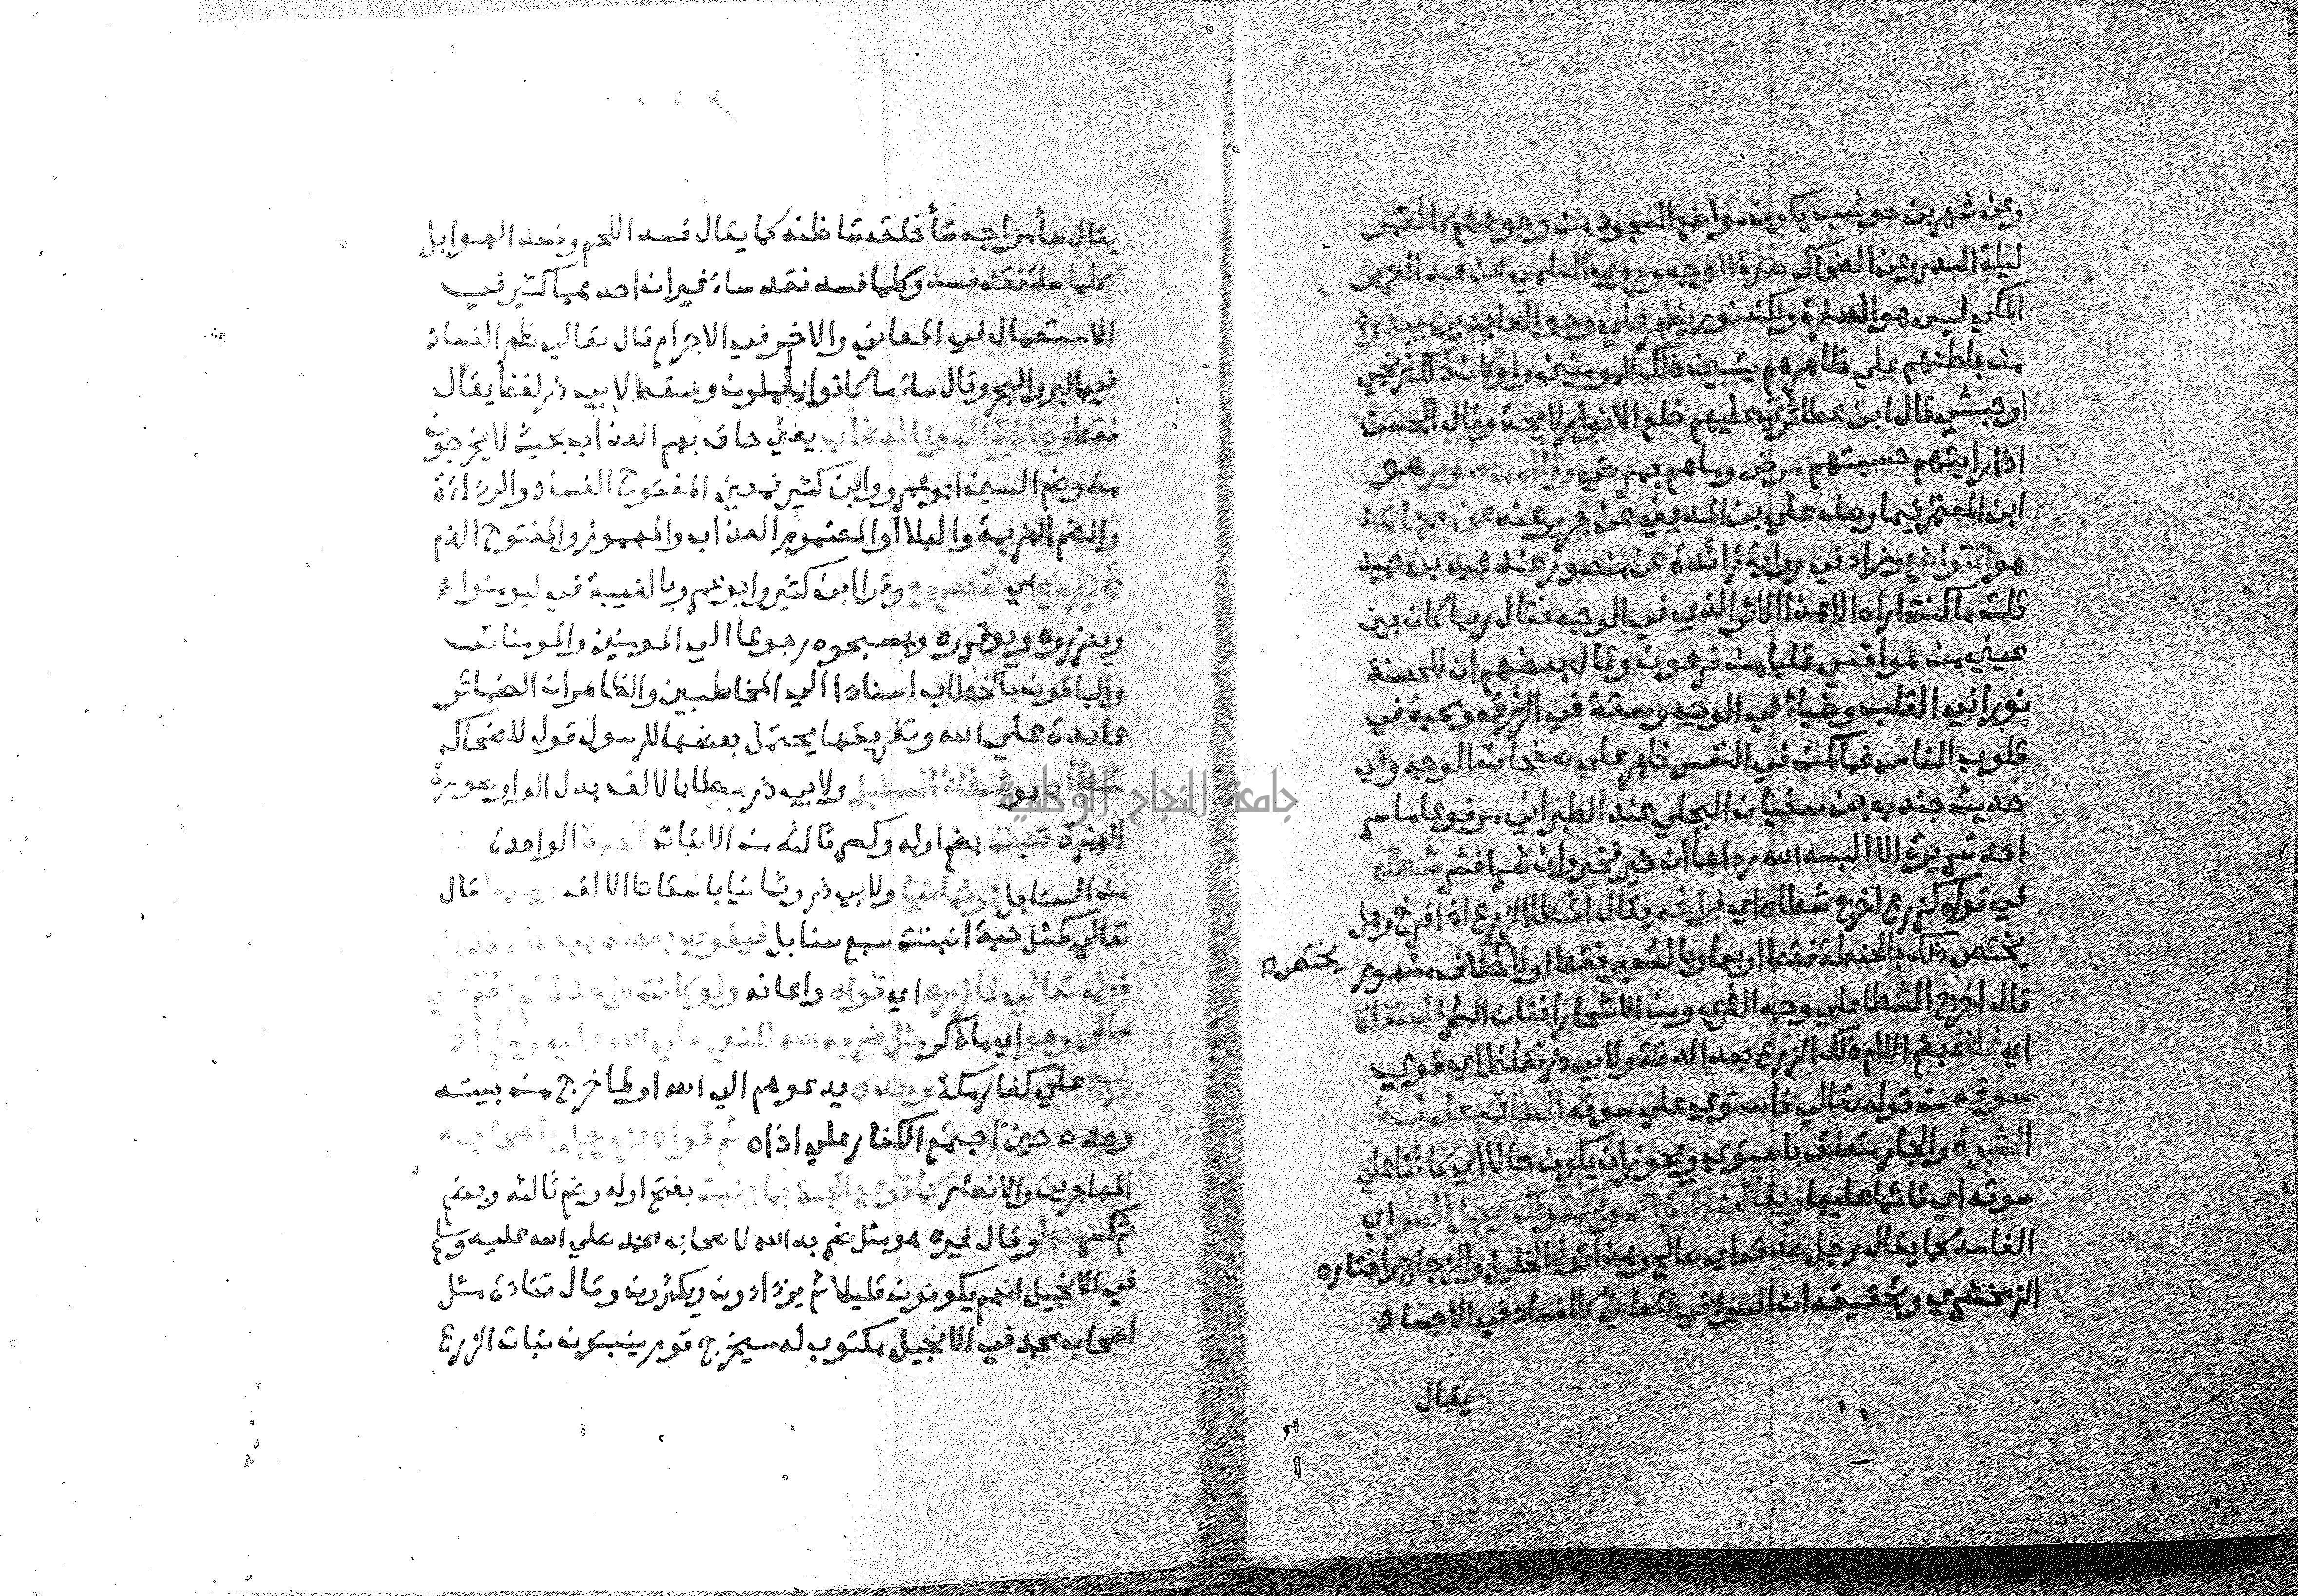 وعن شهر بن حوشب يكون مواضع السجود من وجوههم كالقمر
ليلة البدر وعن الضحاك صفرة الوجه وروي السلمي عن عبد العزيز
المكي ليس هو الصفرة ولكنه نور يظهر علي وجوه العابدين يبدوا
من باطنهم علي ظاهرهم يتبين ذلك للمومنين ولو كان ذلك في زنجي
او حبشي قال ابن عطا تري عليهم خلع الانوار لايحة وقال الحسن
اذا رايتهم حسبتهم مرضي وما هم بمرضي وقال منصور هو
ابن المعتمر فيما وصله علي بن المديني عن جرير عنه عن مجاهد
هو التواضع وزاد في رواية زائدة عن منصور عند عبد بن حميد
قلت ما كنت اراه الا هذا الاثر الذي في الوجه فقال ربما كان بين
عيني من هو اقسي قلبا من فرعون وقال بعضهم ان للحسنة
نورا في القلب وضياء في الوجه وسعة في الرزق ومحبة في
قلوب الناس فما كمن في النفس ظهر علي صفحات الوجه وفي
حديث جندب بن سفيان البجلي عند الطبراني مرفوعا ما سر
احد سريرة الا البسه الله رداها ان خير فخير وان شر افشر شطاه
في قوله كزرع اخرج شطاه اي فراخه يقال اشطا الزرع اذا افرخ وهل
يختص ذلك بالحنطة فقط او بها وبالشعير فقط او لا خلاف مشهور
يختص
قال اخرج الشطا علي وجه الثري ومن الاشجار افنان الثمر فاستغلظ
اي غلظ بضم اللام ذلك الزرع بعد الدقة ولابي ذر تغلظ اي قوي
سوقه من قوله تعالي فاستوي علي سوقه الساق حاملة
الشجرة والجار متعلق باستوي ويجوز ان يكون حالا اي كائنا علي
سوقه اي قائما عليها ويقال دائرة السوء كقولك رجل السو اي
الفاسد كما يقال رجل صدق اي صالح وهذا قول الخليل والزجاج واختاره
الزمخشري وتحقيقه ان السوء في المعاني كالفساد في الاجساد
يقال
يقال ساء مزاجه ساء خلقه ساء ظنه كما يقال فسد اللحم وفسد الهوا بل
كلما ساء فقد فسد وكلما فسد فقد ساء غير ان احدهما كثير في
الاستعمال في المعاني والاخر في الاجرام قال تعالي ظهر الفساد
في البر والبحر وقال ساء ما كانوا يعملون وسقط لابي ذر لفظ يقال
فقط ودائرة السوء العذاب يعني حاق بهم العذاب بحيث لا يخرجون
منه وضم السين ابو عمرو وابن كثير فمعني المفتوح الفساد والرداءة
والضم الهزيمة والبلا او المضموم العذاب والضرر والمفتوح الذم
تعزروه اي تنصروه وقرا ابن كثير وابو عمرو بالغيبة في ليومنوا
ويعزروه ويوقروه ويسبحوه رجوعا الي المومنين والمومنات
والباقون بالخطاب اسنادا الي المخاطبين والظاهر ان الضمائر
عائدة علي الله وتفريقها يجعل بعضها للرسول قول للضحاك
شطاه هو شطا السنبل ولابي ذر شطا بالالف بدل الواو صورة
الهمزة تنبت بضم اوله وكسر ثالثه من الانبات الحبة الواحدة
من السنابل وثمانيا ولابي ذر وثمانيا باسقاط الالف قال
تعالي كمثل حبة انبتت سبع سنابل فيقوي بعضه ببعض
قوله تعالي فازره اي قواه واعانه ولو كانت واحدة لم تقم علي
ساق وهو اي ما ذكر مثل ضربه الله للنبي صلي الله عليه وسلم اذ
خرج علي كفار مكة وحده يدعوهم الي الله او لما خرج من بيته
وحده حين اجتمع الكفار علي اذاه ثم قواه
المهاجرين والانصار كما قوي الحبة بما ينبت بفتح اوله وضم ثالثه وبضم
ثم كسر منها وقال غيره هو مثل ضربه الله لاصحاب محمد صلي الله عليه وسلم
في الانجيل انهم يكونون قليلا ثم يزدادون ويكثرون وقال قتادة مثل
اصحاب محمد في الانجيل مكتوب له سيخرج قوم ينبتون نبات الزرع
جامعة النجاح الوطنية